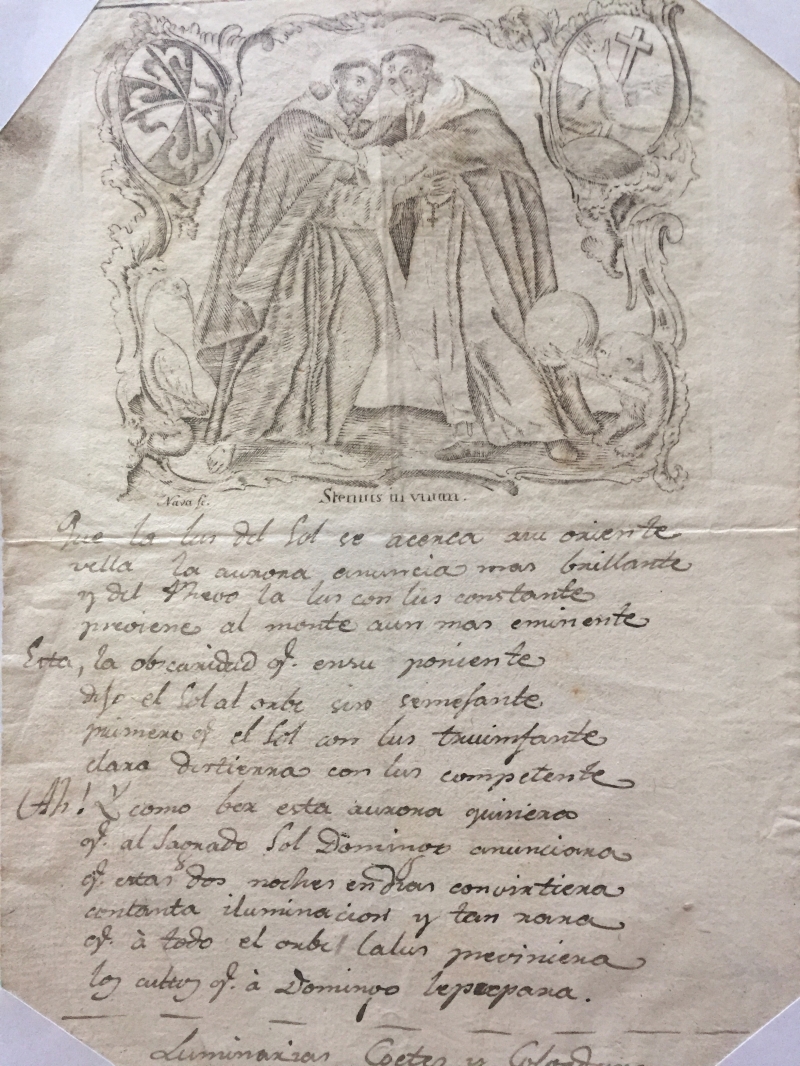 Nava sc.
Stemus in unum.
Que la lus del Sol se acerca asu oriente
vella la aurora anuncia mas brillante
y del Phevo la lus con lus constante
previene al monte aun mas eminente
Esta, la obscuridad q̃. ensu poniente
dejo el Sol al orbe sin semejante
primero q̃ el Sol con lus truimfante
clara destierra con lus competente
Ah! Y como ber esta aurora quiciera
q̃. al Sagrado Sol Domingo anunciara
q̃. estas dos noches en dias convirtiera
contanta iluminacion y tan rara
q̃. à todo el orbe lalus previniera
los cultos q̃. à Domingo le prepara.
Luminarias Coetes y